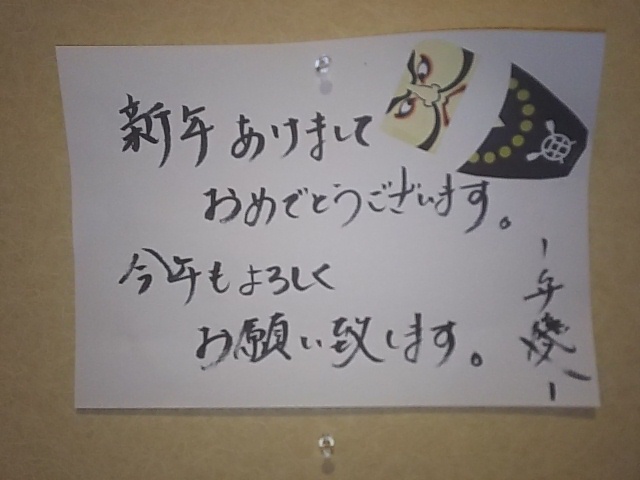 新年あけまして
おめでとうございます。
今年もよろしく
お願い致します。